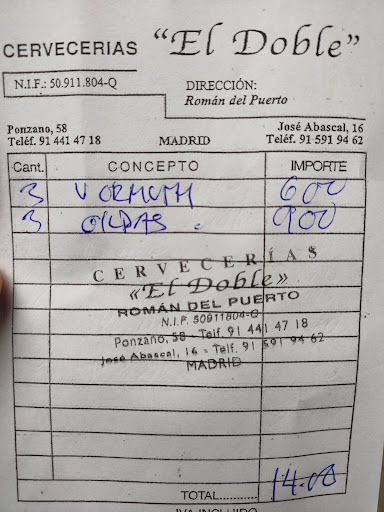 CERVECERIAS "El Doble"
N.I.F.: 50.911.804-Q
DIRECCIÓN:
Román del Puerto
Ponzano, 58
Teléf. 91 441 47 18
MADRID
José Abascal, 16
Teléf. 91 591 94 62
Cant. CONCEPTO IMPORTE
3 VORMUTH 600
3 GILDAS. 900
CERVECERÍAS
«El Doble»
ROMÁN DEL PUERTO
N.I.F. 50911804-Q
Ponzano, 58 - Telf. 91 441 47 18
José Abascal, 16 - Telf. 91 591 94 62
MADRID
TOTAL........... 14.00
IVA INCLUIDO